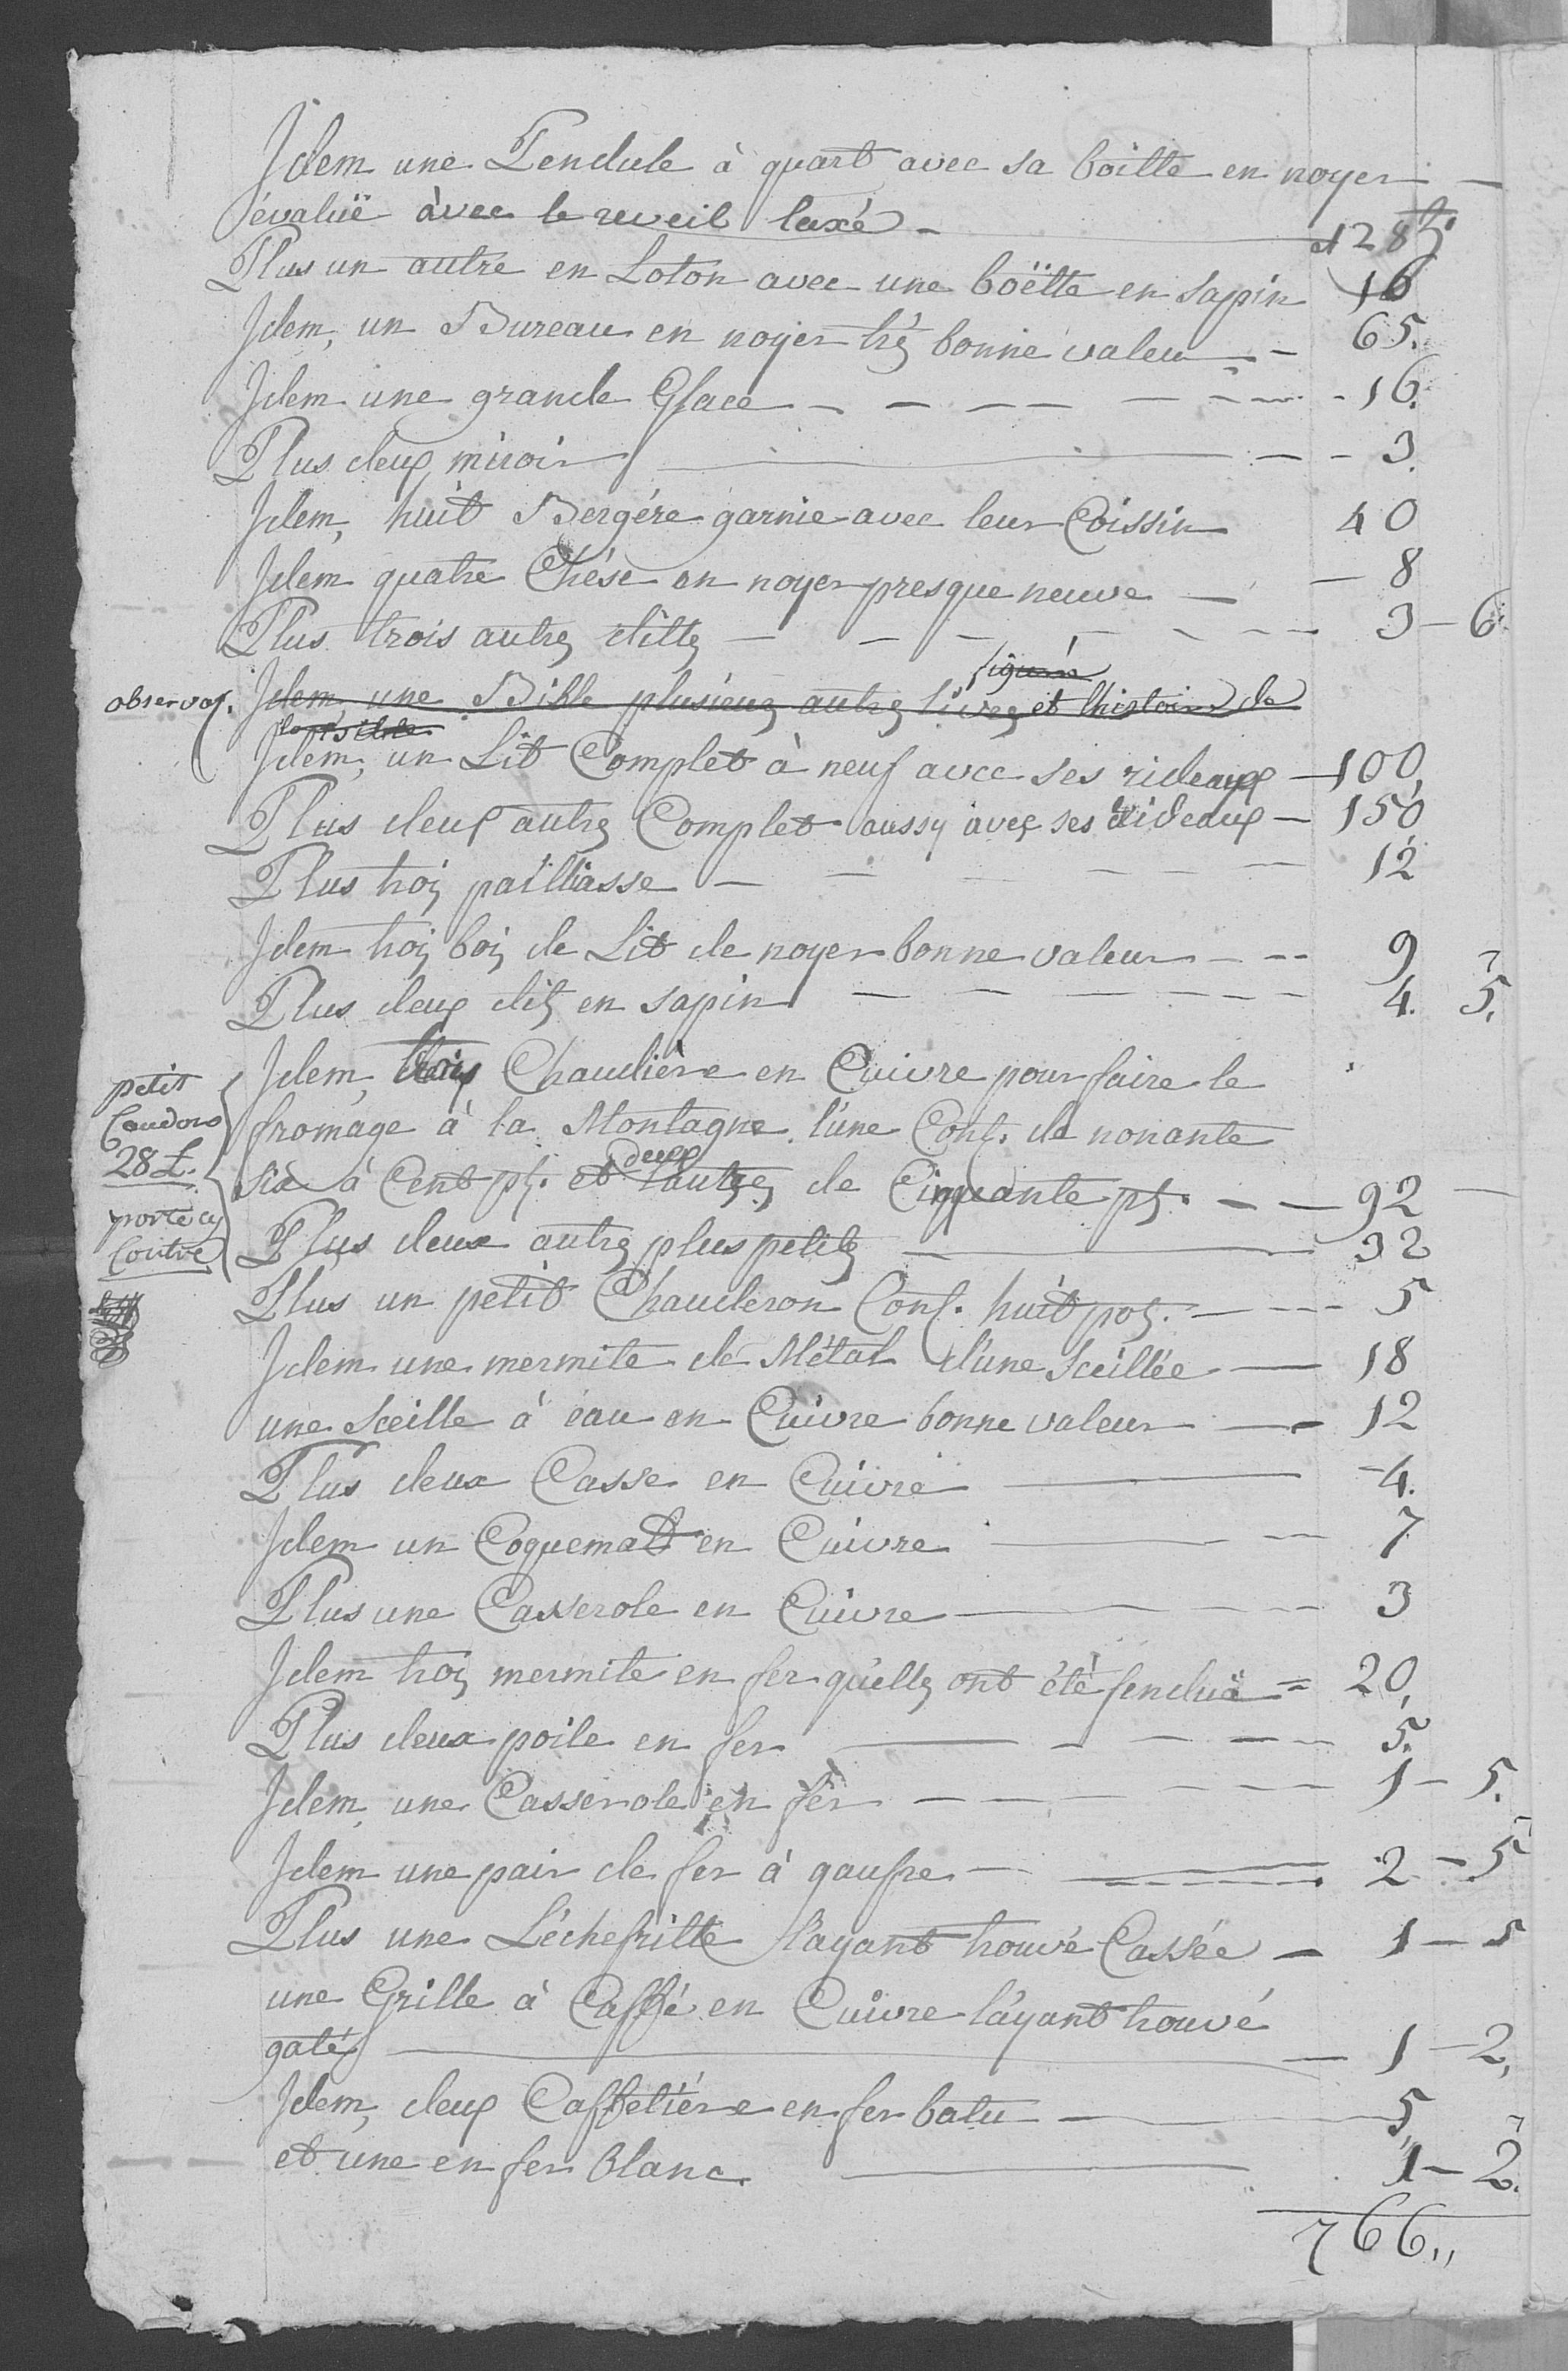 Idem une Pendule à quart avec sa boitte en noyer —
évaluë àvec le reveil taxé — 128
Plus un autre en Loton avec une boëtte en sapin 16
Idem, un Bureau en noyer très bonne valeur — 65.
Idem une grande Glace — 16.
Plus deux miroir — 3.
Idem, huit Bergére garnie avec leur Coissin 40
Idem quatre Chése en noyer presque neuve — 8
Plus trois autres ditte — 3 — 6.
figurée
observaõ. Idem une Bible plusieurs autres livres et lhistoire de
la Bible.
Idem, un Lit Complet à neuf avec ses rideaux — 100,
Plus deux autres Complet aussy avec ses rideaux — 150
Plus trois pailliasse — 12
Idem trois bois de Lit de noyer bonne valeur — 9
Plus deux dits en sapin — 4. 5.
Idem, trois Chaudière en Cuivre pour faire le
fromage à la Montagne, l'une Cont. de nonante
deux
six à Cent pts. et l'autres de Cinquante pts. — 92 —
petit
Caudors
28 L.
porté cy
Contre
Plus deux autres plus petits — 32
Plus un petit Chauderon Cont. huit pots. — 5
Idem une mermite de Métal d'une Seillée — 18
une Seille à éau en Cuivre bonne valeur — 12
Plus deux Casse en Cuivre — 4.
Idem un Coquemat en Cuivre — 7
Plus une Casserole en Cuivre — 3
Idem trois mermite en fer qu'elles ont été fenduë = 20,
Plus deux poile en fer — 5.
Idem, une Casserole en fer — 1 — 5.
Idem une pair de fer à gaufre — 2 — 5
Plus une Léchefritte l'ayant trouvé Cassée — 1 — 5
une Grille à Caffé en Cuivre l'ayant trouvé
gaté — 1 — 2,
Idem, deux Caffetiére en fer batu — 5,
et une en fer blanc. — 1 — 2.
766,,